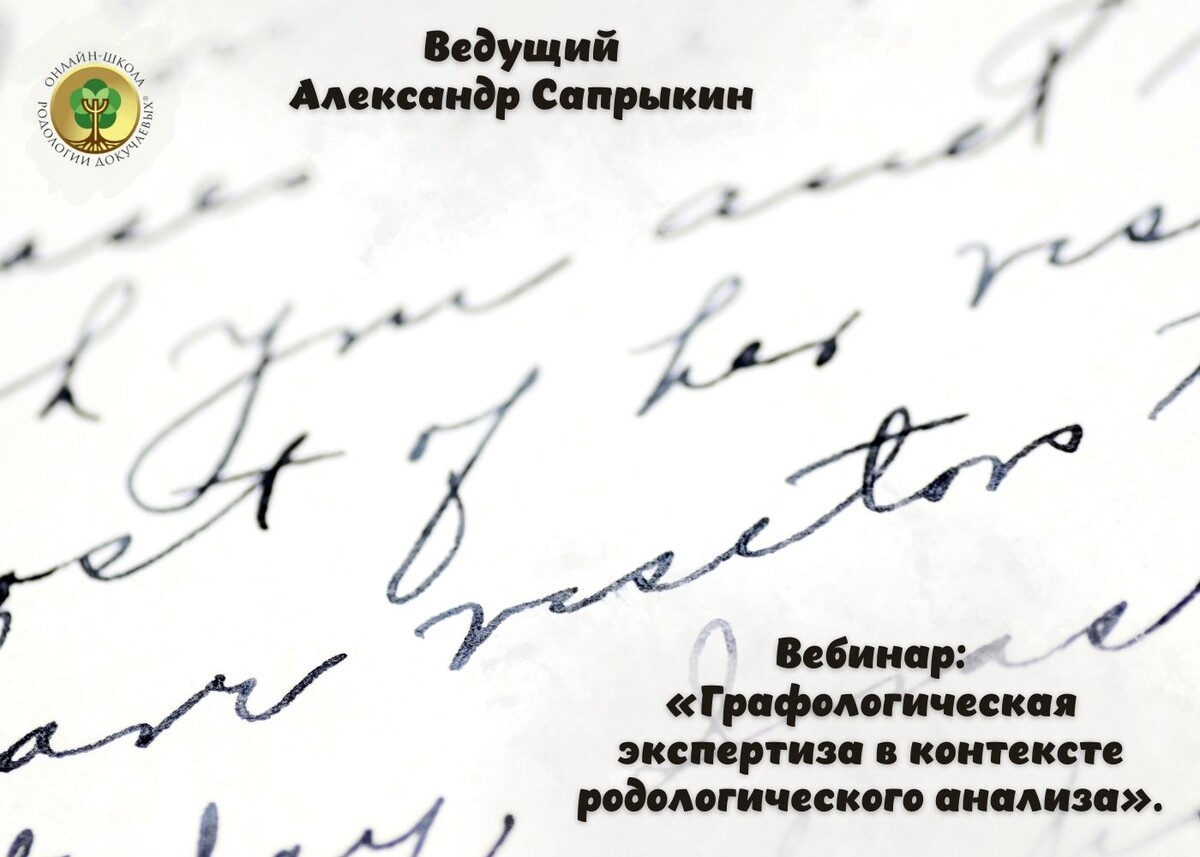 ОНЛАЙН-ШКОЛА
РОДОЛОГИИ ДОКУЧАЕВЫХ®
Ведущий
Александр Сапрыкин
and
h you
her vis
st of
visitors
Вебинар:
«Графологическая
экспертиза в контексте
родологического анализа».